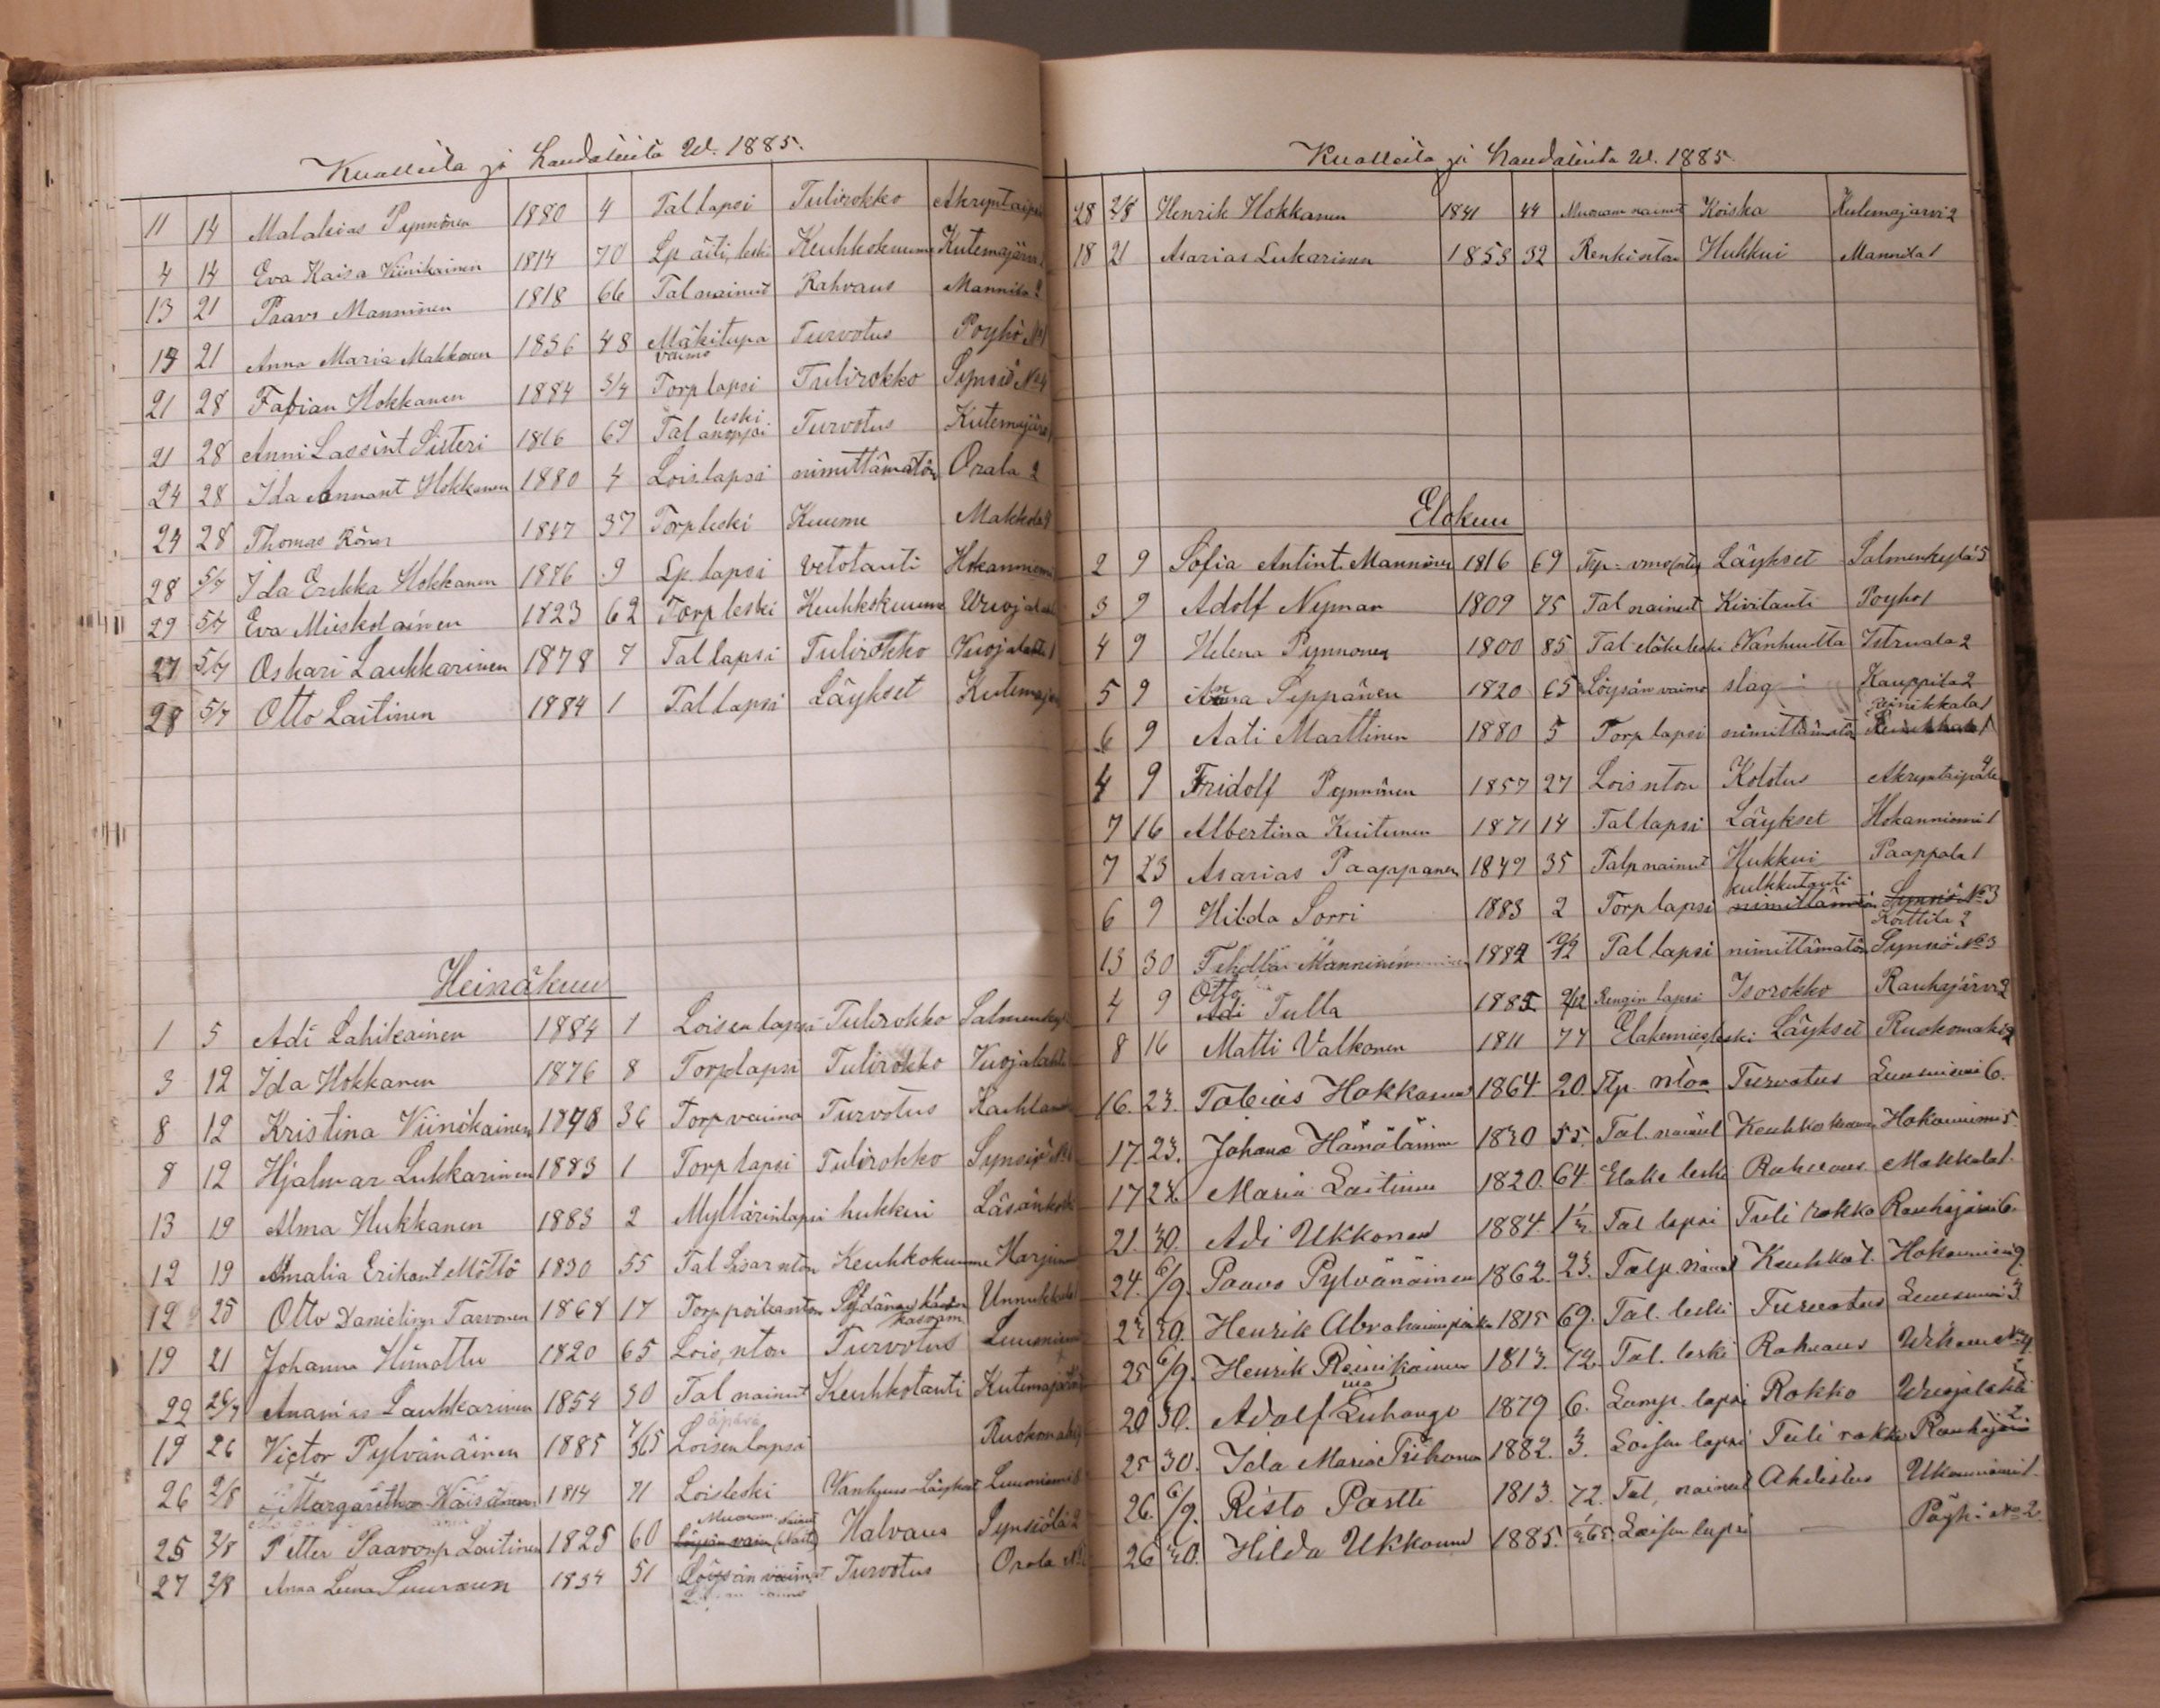 Kuolleita ja Haudatuita W. 1885.
11 14 Malakias Pynnönen 1880 4 Tal lapsi Tulirokko
4 14 Eva Kaisa Viinikainen 1814 70 Lp äiti, leski Keuhkokuume Kutemajärvi
13 21 Paavo Manninen 1818 66 Tal nainut Rahvaus Mannila 2
19 21 Anna Maria Makkonen 1836 48 Mäkitupa vaimo Turvotus Poyhö No 1
21 28 Fabian Hokkanen 1884 3/4 Torp lapsi Tulirokko Synsiö No 4
21 28 Anni Lassint Sitteri 1816 69 Tal anoppi leski Turvotus Kutemajärv
24 28 Ida Annant Hokkanen 1880 4 Lois lapsi nimittämätön Orala 2
24 28 Thomas Könn 1847 37 Torp leski Kuume Makkola
28 5/7 Ida Erikka Hokkanen 1876 9 Lp. lapsi Vetotauti
29 5/7 Eva Mieskolainen 1823 62 Torp leski Keuhkokuume
27 5/7 Oskari Laukkarinen 1878 7 Tal lapsi Tulirokko Vuojalahti 1
28 5/7 Otto Laitinen 1884 1 Tal lapsi Läykset Kutemajar
Heinäkuu
1 5 Adi Lahikainen 1884 1 Loisen lapsi Tulirokko Salmenkyl
3 12 Ida Hokkanen 1876 8 Torplapsi Tulirokko Vuojalahti
8 12 Kristina Viinikainen 1848 36 Torp vaimo Turvotus
8 12 Hjalmar Lukkarinen 1883 1 Torp lapsi Tulirokko Synsiö No
13 19 Alma Hukkanen 1883 2 Myllärinlapsi hukkui Läsänkoski
12 19 Amalia Erikant Möttö 1830 55 Tal Sisar nton Keuhkokuume
12 25 Otto Danielinp Tarvonen 1868 17 Torp poika nton Sydämen kasvam Unnukkala
19 21 Johanna Himottu 1820 65 Lois, nton Turvotus
22 26/7 Ananias Laukkarinen 1854 30 Tal nainut Keuhkotauti Kutemajärvi
19 26 Victor Pylvänäinen 1885 7/365 Loisen lapsi äpärä Ruokomäki
26 2/8 Margaretha Käisänen 1814 71 Loisleski Vanhuus-Läykset Luusniemi
25 2/8 Petter Paavonp Laitinen 1825 60 Muonam. nainut Halvaus Synsiölä 2
27 2/8 Anna Leena Suuronen 1834 51 Löysän vaimo Turvotus Orola No
Kuolleita ja Haudatuita W. 1885.
28 2/8 Henrik Hokkanen 1841 44 Muonam nainut Koiska Kutemajarvi 2
18 21 Asarias Lukarinen 1853 32 Renki nton Hukkui Mannila 1
Elokuu
2 9 Sofia Antint. Manninen 1816 69 Torp. vmo Läykset Salmenkylä 5
3 9 Adolf Nyman 1809 75 Tal nainut Kivitauti Poyho 1
4 9 Helena Pynnonen 1800 85 Tal eläke leski Vanhuutta Istruala 2
5 9 Anna Seppänen 1820 65 Löysän vaimo slag Kauppila 2
6 9 Aati Marttinen 1880 5 Torp lapsi nimittämätä Reinikkala 1
4 9 Fridolf Pynnönen 1857 27 Lois nton Kolotus
7 16 Albertina Kuitunen 1871 14 Tal lapsi Läykset Hokanniemi 1
7 23 Asarias Paappanen 1849 35 Talp nainut Hukkui Paappala 1
6 9 Hilda Sorri 1883 2 Torp lapsi kulkkutauti Korttila 2
13 30 Manninen 1884 Tal lapsi nimittämatön Synsiö No 3
4 9 Otto Tulla 1885 2/12 Rengin lapsi Isorokko Rauhajärvi 2
8 16 Matti Valkonen 1811 74 Elakemies, leski Läykset Ruokomaki 2
16. 23. Tobias Hokkanen 1864. 20. Tlp. nton Turvotus Luusniemi 6.
17. 23. Johan Hämäläinen 1830 55. Tal. nainut Keuhkokuume Hokanniemi 5.
17 23. Maria Laitinen 1820. 64 Elake leski Rahvaus Makkola 1.
21. 30. Adi Ukkonen 1884. Tal lapsi Tuli rokko Rauhajärvi 6.
24. 6/9. Paavo Pylvänäinen 1862. 23. Talp. nainut Keuhkot. Hokanniemi 9.
23 30. Henrik Abrahaminpoika 1815 69. Tal. leski Turvotus Luusniemi 3
25 6/9. Henrik Reinikainen 1813. 72. Tal. leski Rahvaus
20 30. Adolf Luhanga 1879 6. Lamp. lapsi Rokko Vuojalahti 5
25 30. Ida Maria Tiihonen 1882. 3. Loisen lapsi Tuli rokko Rauhajärvi 2
26. 6/9. Risto Partti 1813. 72. Tal, nainut Ahdistus Ukonniemi 1.
26 30. Hilda Ukkonen 1885. Loisen lapsi — Pöyhö No 2